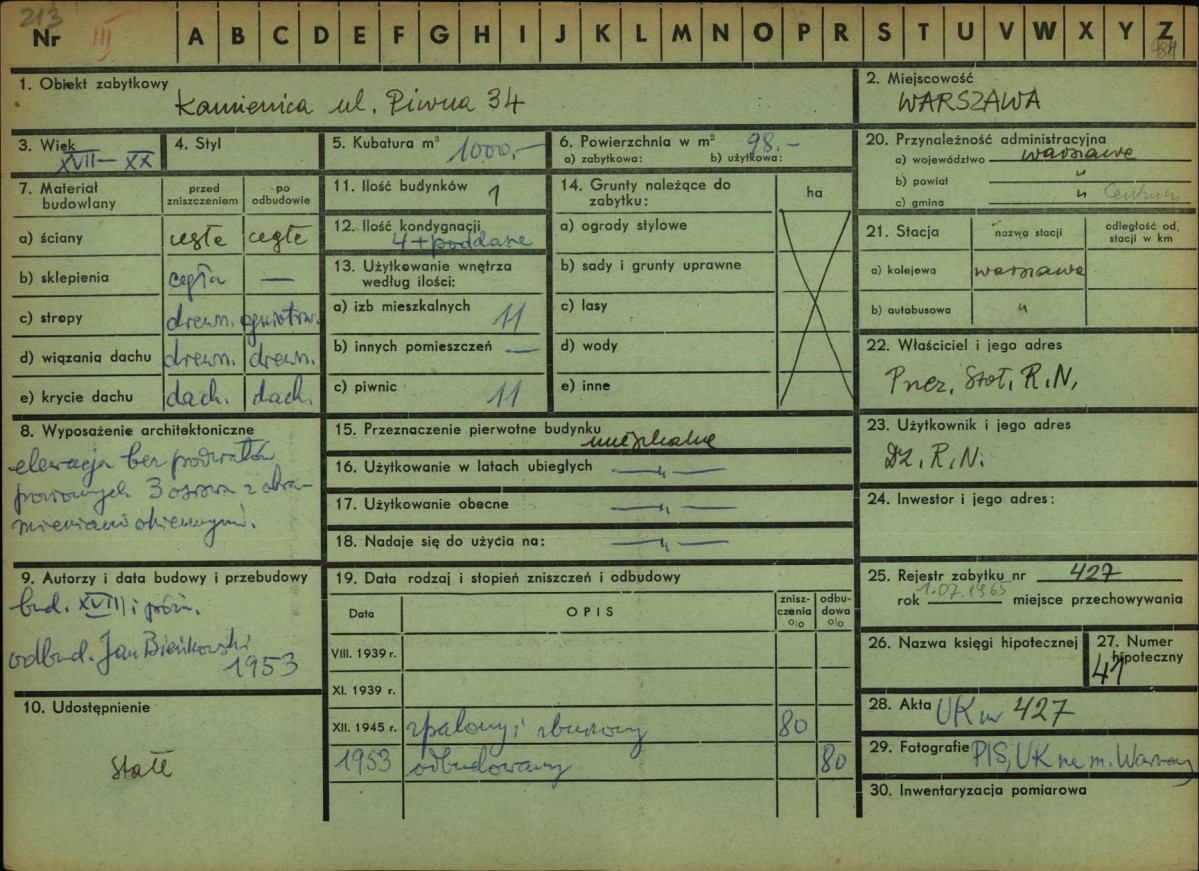 213
Nr III A B C D E F G H I J K L M N O P R S T U V W X Y Z
84
1. Obiekt zabytkowy
Kamienica ul. Piwna 34
2. Miejscowość
WARSZAWA
3. Wiek
XVII—XX
4. Styl
5. Kubatura m³ 1000.-
6. Powierzchnia w m² 98.-
a) zabytkowa: b) użytkowa:
20. Przynależność administracyjna
a) województwo warszawa
b) powiat "
c) gmina " Centrum
7. Materiał budowlany
przed zniszczeniem
po odbudowie
a) ściany cegła cegła
b) sklepienia cegła —
c) stropy drewn. ogniotrw.
d) wiązania dachu drewn. drewn.
e) krycie dachu dach. dach.
11. Ilość budynków 1
12. Ilość kondygnacji
4 + poddasze
13. Użytkowanie wnętrza
według ilości:
a) izb mieszkalnych 11
b) innych pomieszczeń —
c) piwnic 11
14. Grunty należące do
zabytku:
ha
a) ogrody stylowe
b) sady i grunty uprawne
c) lasy
d) wody
e) inne
21. Stacja
nazwa stacji
odległość od stacji w km
a) kolejowa warszawa
b) autobusowa "
22. Właściciel i jego adres
Prez. Stoł. R.N.
8. Wyposażenie architektoniczne
elewacja bez podziałów
poziomych 3 osiowa z obra-
mieniami okiennymi.
15. Przeznaczenie pierwotne budynku
mieszkalne
16. Użytkowanie w latach ubiegłych — " —
17. Użytkowanie obecne — " —
18. Nadaje się do użycia na: — " —
23. Użytkownik i jego adres
Dz. R.N.
24. Inwestor i jego adres:
9. Autorzy i data budowy i przebudowy
bud. XVIII i późn.
odbud. Jan Bieńkowski
1953
19. Data rodzaj i stopień zniszczeń i odbudowy
Data
OPIS
znisz-
czenia
o|o
odbu-
dowa
o|o
VIII. 1939 r.
XI. 1939 r.
XII. 1945 r. spalony i zburzony 80
1953 odbudowany 80
25. Rejestr zabytku nr 427
rok 1.07.1965 miejsce przechowywania
26. Nazwa księgi hipotecznej
27. Numer
hipoteczny
41
10. Udostępnienie
stałe
28. Akta UK nr 427
29. Fotografie PIS, UK na m. Warszawy
30. Inwentaryzacja pomiarowa